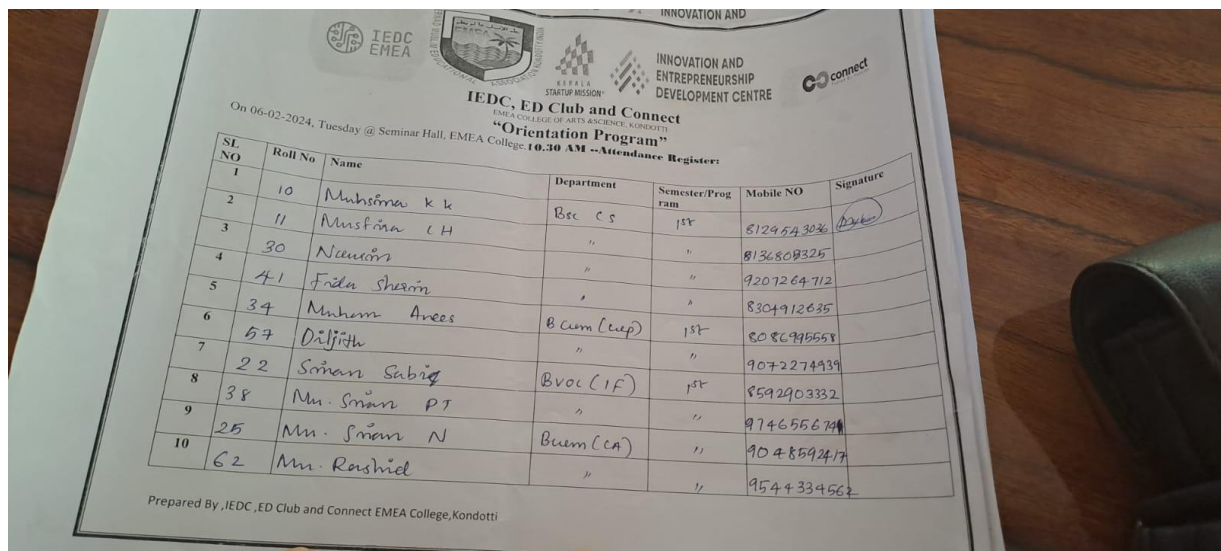 INNOVATION AND
IEDC
EMEA
EMEA
KERALA
STARTUP MISSION
INNOVATION AND
ENTREPRENEURSHIP
DEVELOPMENT CENTRE
connect
IEDC, ED Club and Connect
EMEA COLLEGE OF ARTS &SCIENCE, KONDOTTI
“Orientation Program”
On 06-02-2024, Tuesday @ Seminar Hall, EMEA College.10.30 AM --Attendance Register:
SL NO Roll No Name Department Semester/Program Mobile NO Signature
1 10 Muhsina K K Bsc CS 1st 8129543036
2 11 Musfina CH " " 8136809325
3 30 " " 9207264712
4 41 Frida Sherin " " 8304912635
5 34 Muham Anees 1st 8086995558
6 57 Diljith " " 9072274939
7 22 Sinan Sabiq BVOC (IF) 1st 8592903332
8 38 Mu. Sinan PT " "
9 25 Mu. Sinan N (CA) " 9048592417
10 62 Mu. Rashid " " 9544334562
Prepared By ,IEDC ,ED Club and Connect EMEA College,Kondotti